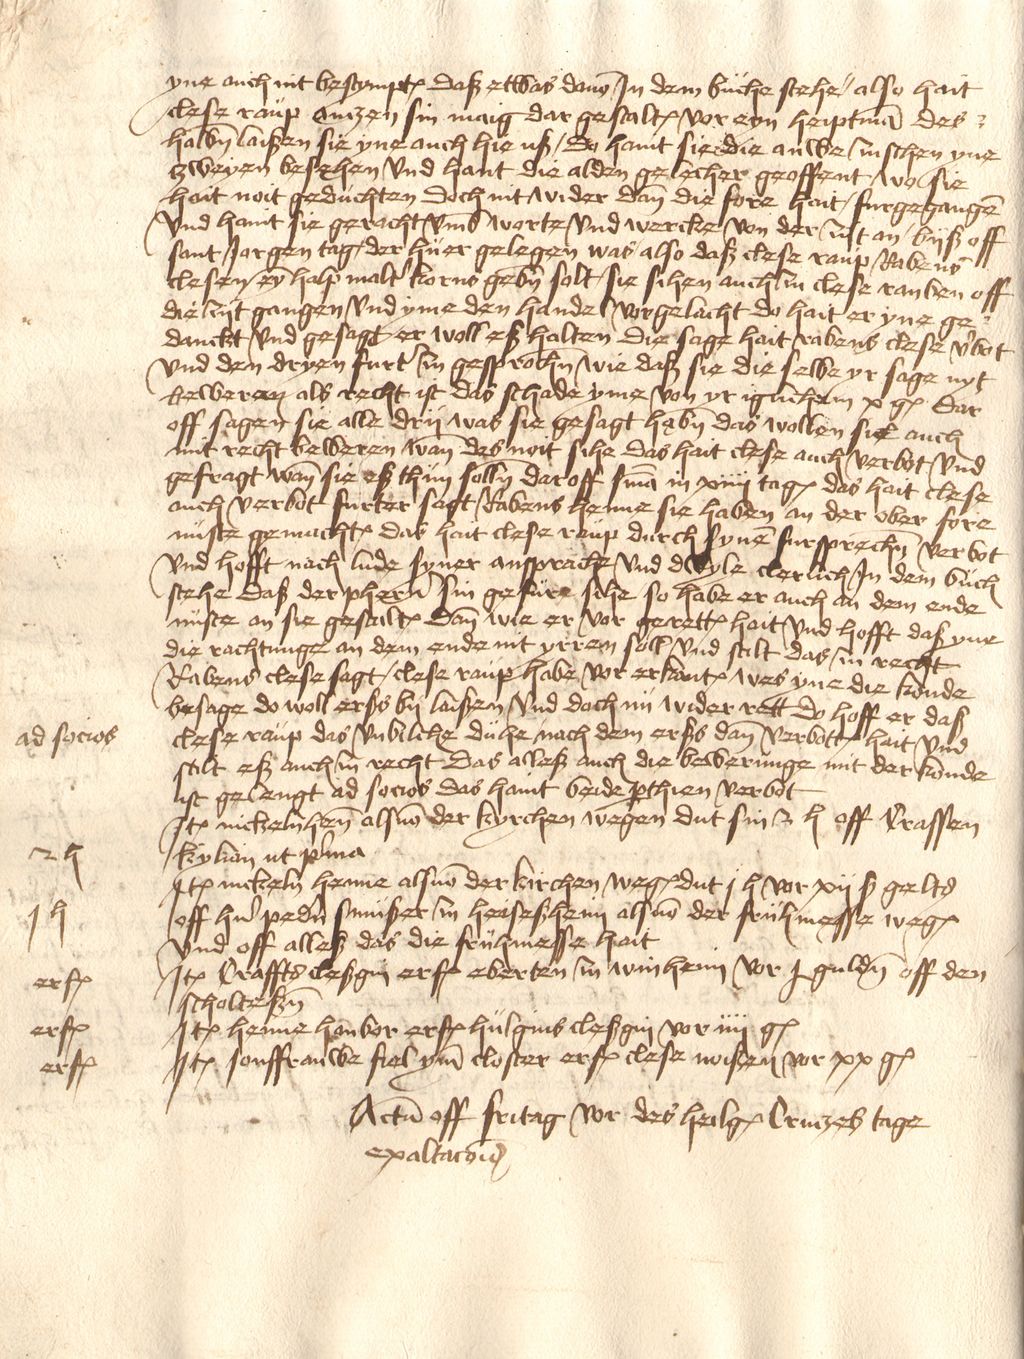 yne auch nit bestympt(e) daß etwas davo(n) In dem buche stehe / also hait
clese raup Contzen sin maig dar gestalt(e) vor eyn heiptma(n) des
halb(e)n laißen sie yne auch hie uß / Do haint sie die anwe(n) zuschen yne
zweyen besehen und haint die alden gelecher geoffent / wo sie
hait noit geduchten doch nit wider dan(n) die fore hait furgegange(n)
und haint sie geracht umb worte und wercke von der zijt an / bijß off
sant Jorgen tag der huer gelegen was also daß clese raup Rabens
clesen ey(n) halp malt(er) korns geb(e)n solt / sie sihen auch in clese rauben off
die zijt gangen und yme den handel vorgelacht do hait er yne ge
danckt und gesagt er woll eß halten Die sage hait rabens clese v(er)bot
und den dryen furt(er) in gesproch(e)n wie daß sie die selbe yr sage nyt
beweren als recht ist das schade yme von yr iglichem x g(ulden) Dar
off sagen sie alle drij was sie gesagt hab(e)n das wollen sie auch
mit recht beweren wan(n) des noit sihe das hait clese auch verbot und
gefragt wan(n) sie eß thun soll(e)n dar off s(ente)n(ti)a in xiiij tag(en) das hait clese
auch verbot furter sagt Rabens henne sie haben an der ober fore
nuste gemacht(e) das hait clese raup durch syne(n) fursprech(e)n verbot
und hofft nach lude syner ansprache und dwyle clerlich In dem buch
stehe daß der pherr(er) sin gefure sihe so habe er auch an dem ende
nuste an sie gestalt(e) dan(n) wie er vor gerett(e) hait und hofft daß yne
die rachtunge an dem ende nit yrren soll und stilt das in recht
Rabens clese sagt / clese raup habe vor erkant(e) wes yne die konde
besage do woll erß by laißen und doch nu wider rett do hoff er daß
clese raup das unbilche duhe nach dem erß dan(n) verbott(e) hait und
ad socios
stilt eß auch in recht Das alleß auch die bewerunge mit der konde
ist gelengt ad socios das haint beide p(ar)thien verbot
It(em) nickeln hen(ne) als vo(n) der kyrchen wegen dut sin 2 h off Crafften
2 h
kylian ut p(ri)ma
It(em) nickeln henne als vo(n) der kirchen weg(en) dut j h vor xij ß gelts
j h
off hu(s) ped(er)n snußer in heisesheim als vo(n) der fruhmesse weg(en)
und off alleß das die fruhmesse hait
erf(elt)
It(em) Craffts cleßgin erf(elt) eberten in winheim vor j guld(e)n off den
scholteß(e)n
erf(elt)
It(em) henne honbor erf(elt) hulgins cleßgin vor iiij g(ulden)
erf(elt)
It(em) Jonffrauwe fiel ym closter erf(elt) clese noißen vor xx g(ulden)
Actu(m) off fritag vor des heilg(en) Crutzes tage
exaltaco(n)is